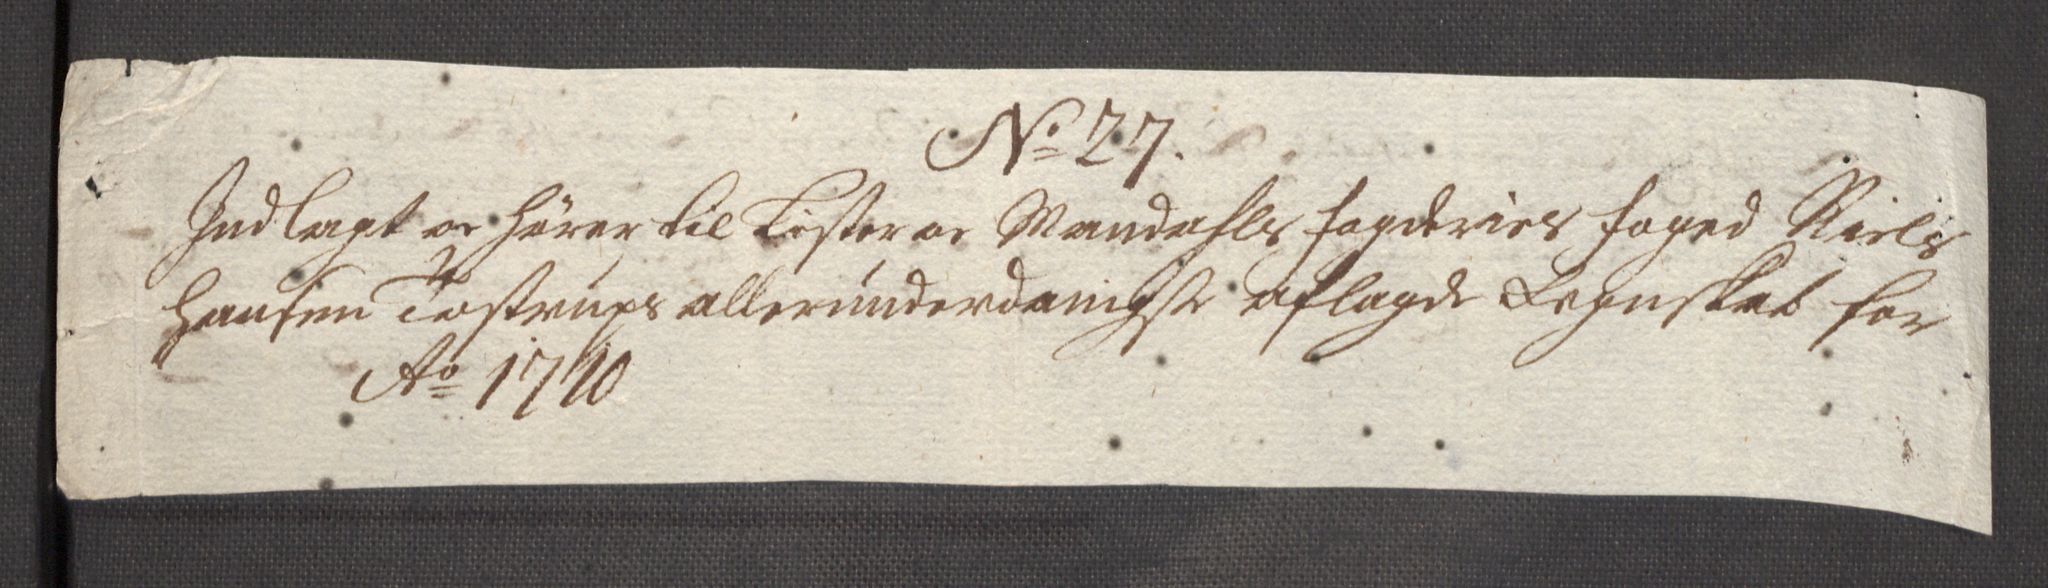 No 27.
Indlagt oc hörer til Lister oc Mandahls fogderies foged Niels
Hansen Tostrups allerunderdanigste aflagde Regnskab for
Ao 1710